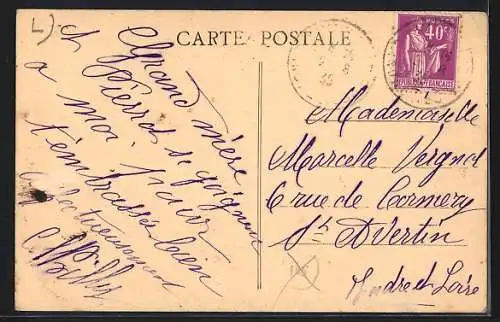 L)
CARTE POSTALE
40c
Grand mère
et Pierrot se joignent
a moi pour
t'embrasser bien
affectueusement
Mademoiselle
Marcelle Vergnol
6 rue de Cormery
St Avertin
Indre et Loire